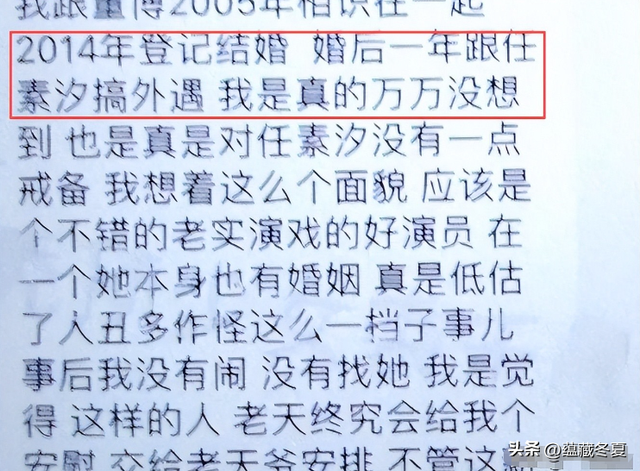 我跟董博2005年相识在一起
2014年登记结婚 婚后一年跟任
素汐搞外遇 我是真的万万没想
到 也是真是对任素汐没有一点
戒备 我想着这么个面貌 应该是
个不错的老实演戏的好演员 在
一个她本身也有婚姻 真是低估
了人丑多作怪这么一档子事儿
事后我没有闹 没有找她 我是觉
得 这样的人 老天终究会给我个
安慰 交给老天爷安排 不管这
头条 @蕴藏冬夏